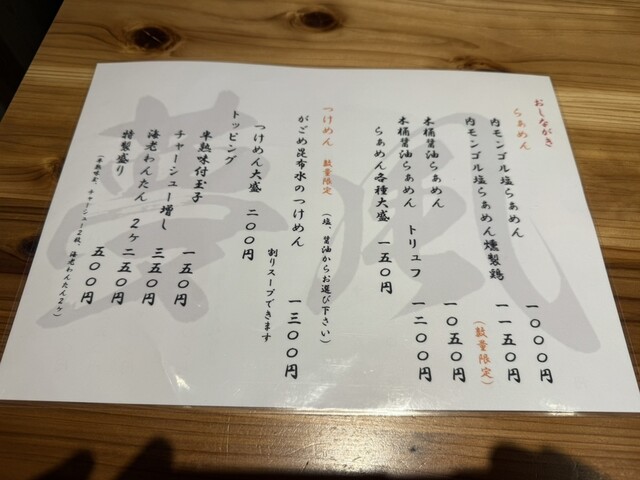 おしながき
らぁめん
内モンゴル塩らぁめん 一〇〇〇円
内モンゴル塩らぁめん燻製鶏 一一五〇円
(数量限定)
木桶醤油らぁめん 一〇五〇円
木桶醤油らぁめん トリュフ 一二〇〇円
らぁめん各種大盛 一五〇円
つけめん 数量限定 (塩、醤油からお選び下さい)
がごめ昆布水のつけめん 一三〇〇円
割りスープできます
つけめん大盛 二〇〇円
トッピング
半熟味付玉子 一五〇円
チャーシュー増し 三五〇円
海老わんたん 2ヶ 二五〇円
特製盛り 五〇〇円
(半熟味玉、チャーシュー2枚、海老わんたん2ヶ)